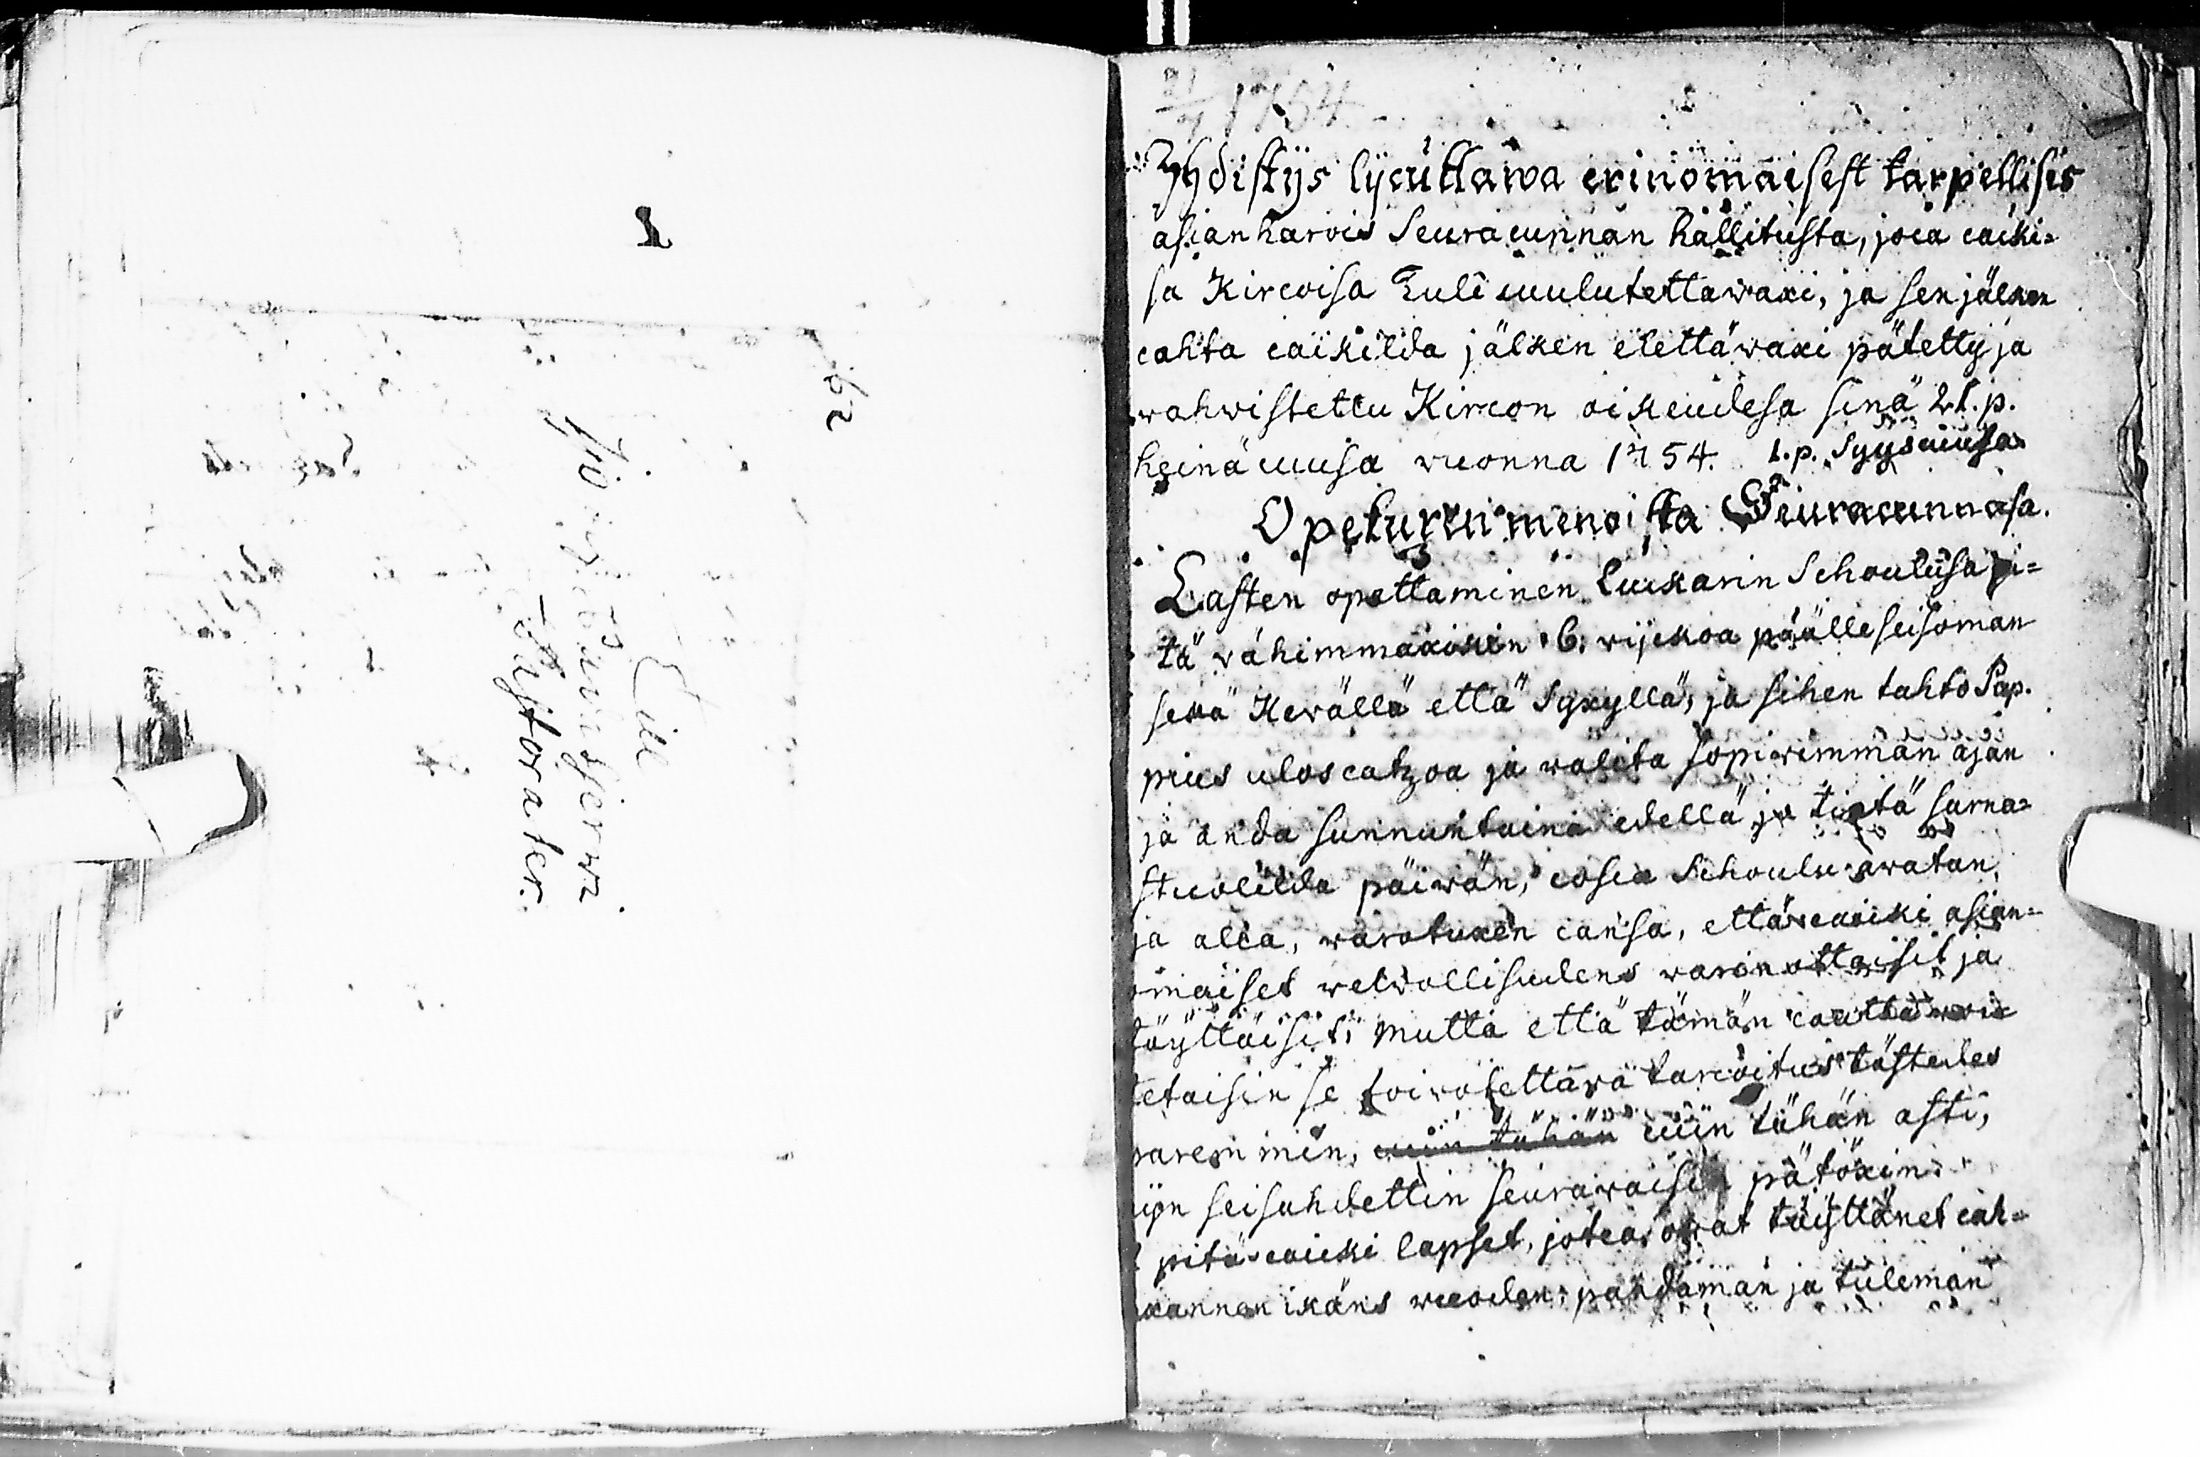 1
62
Till
Pastoratet
21/7 1754
Yhdistys lijcuttawa erinomaisest tarpellisis
asianharois Seuracunnan hallitusta, joca caiki=
sa Kircoisa Tuli cuulutettawaxi, ja sen jälken
cahta caikilda jälken elettäwaxi pätetty ja
wahwistettu Kircon oikeudesa sinä 21. p.
heinä cuusa wuonna 1754. 1. p. Syyscuusa
Opetuxen menoista Seuracunnasa.
Lasten opettaminen Luckarin Schoulusa pi=
tä wähimmäxikin 6. wijckoa päälleseisoman
sekä Kewällä että Syxyllä, ja sihen tahto Pap.
pius uloscatzoa ja walita sopiwimman ajan
ja anda sunnuntaina edellä ja tietä sarna=
stuolilda päiwän, cosca Schoulu awatan,
ja alca, warotuxen cansa, että caicki asian=
omaiset welwollisudens warinottaisit ja
töyttäisit; Mutta että tämän cautta woi=
tetaisin se toiwotettawa tarcoitus tästedes
paremmin, cuin tähän cuin tähän asti,
nijn seisahdettin seurawaisen pätöxin:
pitä caicki lapset, jotca owat täyttänet cah=
xannen ikäns wuoden: pandaman ja tuleman